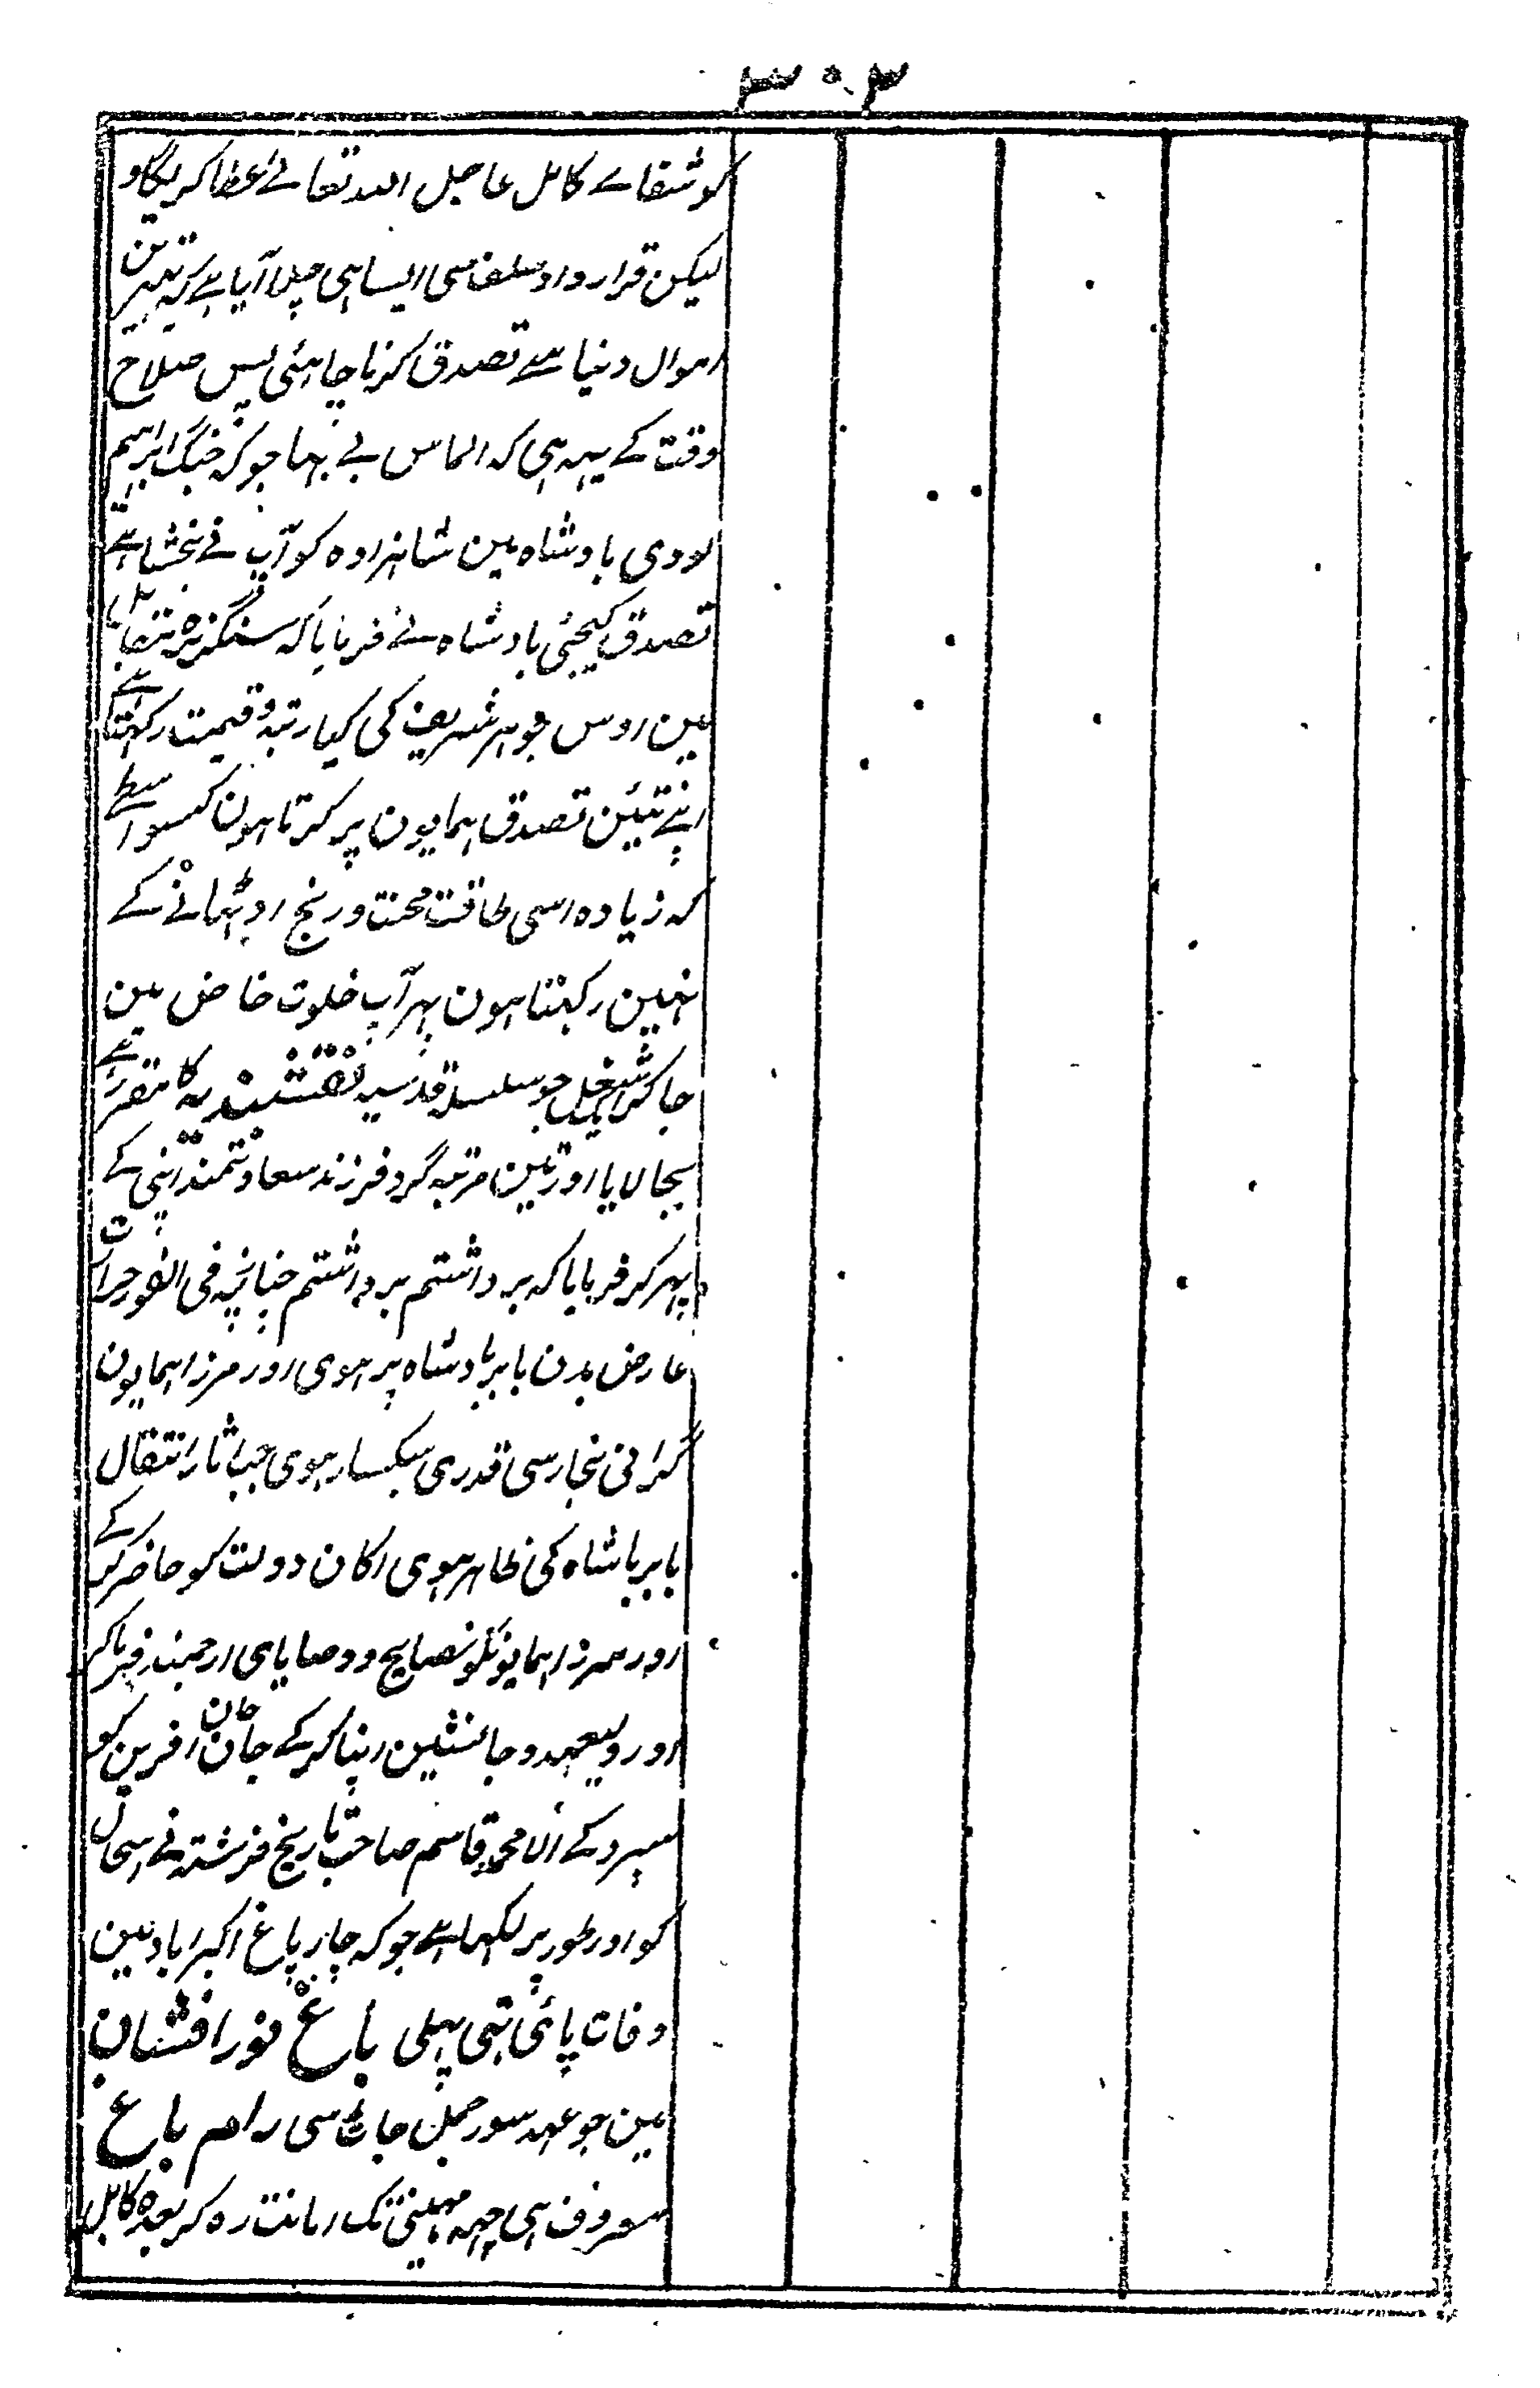 ۳۰۳
کو شفاے کامل عاجل اللہ تعالے عطا کریگا و
لیکن قرارداد سلف سی ایسا ہی چلا آیا ہے کہ بہترین
اموال دنیا سے تصدق کرنا چاہئی پس صلاح
وقت کے یہہ ہی کہ الماس بے بہا جو کہ جنگ ابراہیم
لودی بادشاہ مین شاہزادہ کو آپ نے بخشا ہے
تصدق کیجئی بادشاہ نے فرمایا کہ سنگریزہ مقابل
مین اوس جوہر شریف کی کیا رتبہ و قیمت رکہتا ہے
اپنے تیئن تصدق ہمایون پر کرتا ہون کسواسطے
کہ زیادہ اسی طاقت محنت و رنج اوٹہانے کے
نہین رکہتا ہون پہر آپ خلوت خاص مین
جا کر شغل جو سلسلہ قدسیہ نقشبندیہ کا مقرر ہے
بجا لایا اور تین مرتبہ گرد فرزند سعادتمند اپنی کے
پہر کر فرمایا کہ برداشتم برداشتم چنانچہ فی الفور حرارت
عارض بدن بابر بادشاہ پر ہوی اور مرزا ہمایون
گرانی بخار سی قدری سبکسار ہوی جب اثار انتقال
بابر باشاہ کی ظاہر ہوی ارکان دولت کو حاضر کر کے
اور مرزا ہمایونکو نصایح و وصایای ارجمند فرما کر
اور ولیعہد و جانشین اپنا کر کے جان جان افرین کو
سپرد کے الا محمد قاسم صاحب تاریخ فرشتہ نے اسحال
کو اور طور پر لکہا ہے جو کہ چار باغ اکبراباد مین
وفات پائی تہی پہلی باغ نور افشان
مین جو عہد سورجمل جاٹ سی رام باغ
معروف ہی چہہ مہینی تک امانت رہ کر بعدہ کابل